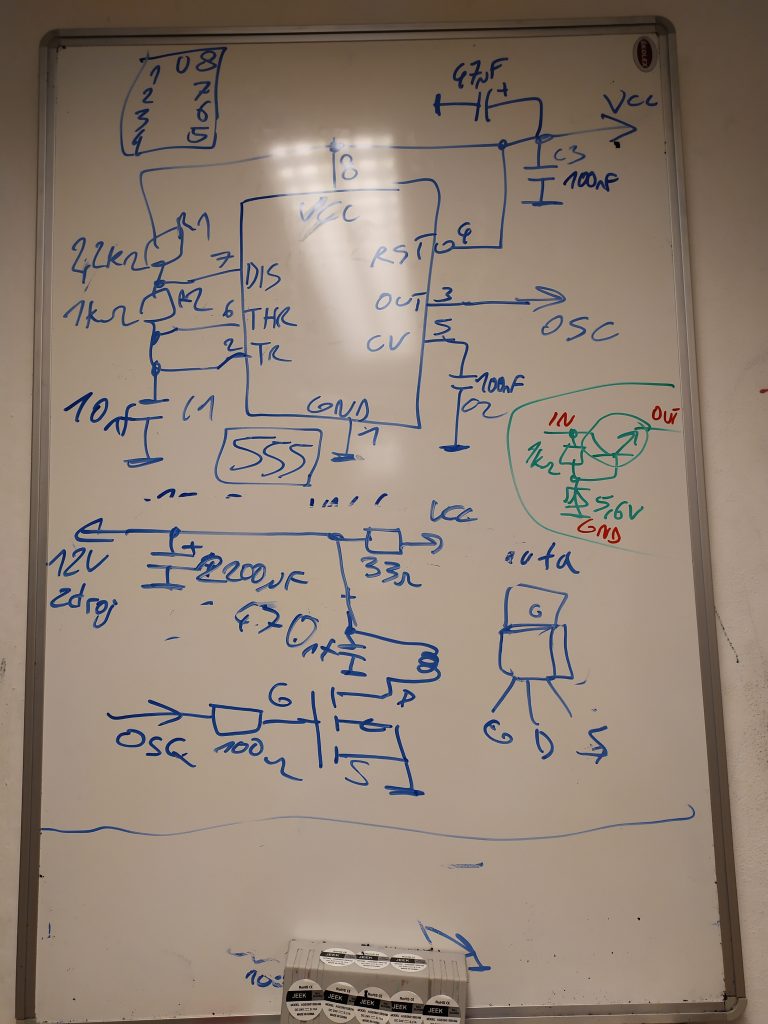 1 U 8
2 7
3 6
4 5
47µF
+
VCC
C3
100nF
8
VCC
R1
2,2kΩ
7
DIS
RST
4
R2
1kΩ
6
THR
OUT
3
OSC
2
TR
CV
5
10nF
C1
GND
1
100nF
C2
555
IN
OUT
1kΩ
5,6V
GND
VCC
12V
zdroj
+
2200µF
33Ω
470nF
G
G
D
OSC
100Ω
S
G D S
JEEK
JEEK
JEEK
JEEK
JEEK